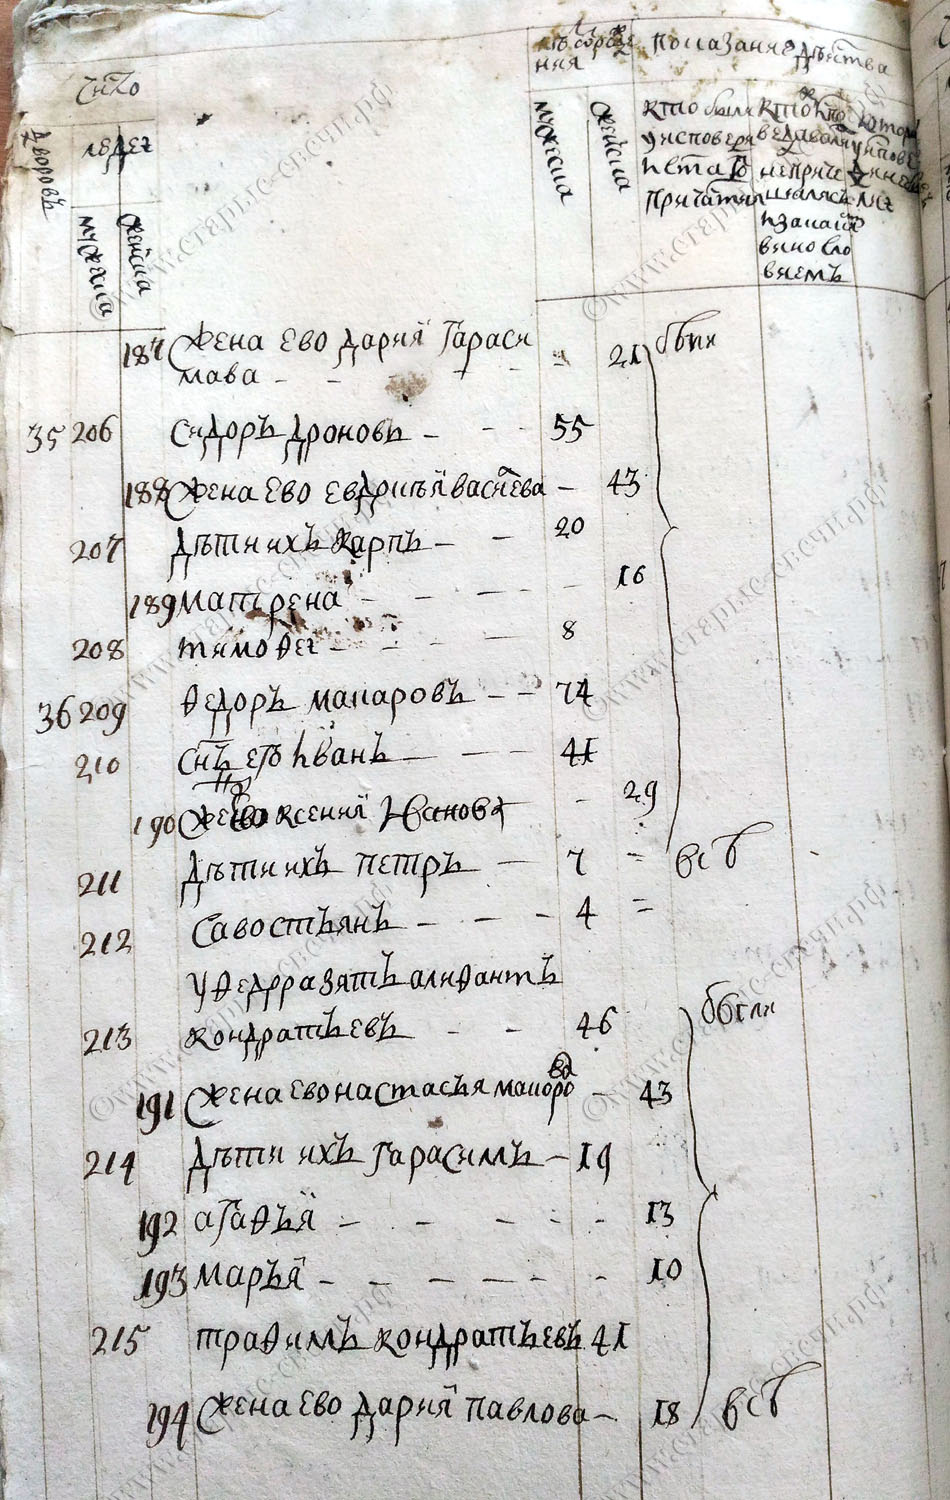 число
дворовъ
людех
мужеска
женска
мужеска
женска
ния
показание действа
кто были
у исповеди
и ст҃аго
187 жена ево дария гараси 21 были
мава
35 206 сидоръ дроновъ 55
188 жена ево евдокѣя васи͡лева 43
207 дѣти ихъ карпъ 20
189 матрена 16
208 тимоѳеı 8
36 209 ѳедоръ макаровъ 74
210 сн҃ъ его иванъ 41
190 жена ево ксения иванова 29
211 дѣти ихъ петръ 7 = всѣ
212 савостьянъ 4 =
у ѳедора зять алиѳантъ
213 кондратьевъ 46 были
191 жена ево настасья макорова 43
214 дѣти ихъ гарасимъ 19
192 агаѳья 13
193 марья 10
215 траѳимъ кондратьевъ 41
194 жена ево дария павлова 18 всѣ
©www.старые-свечи.рф